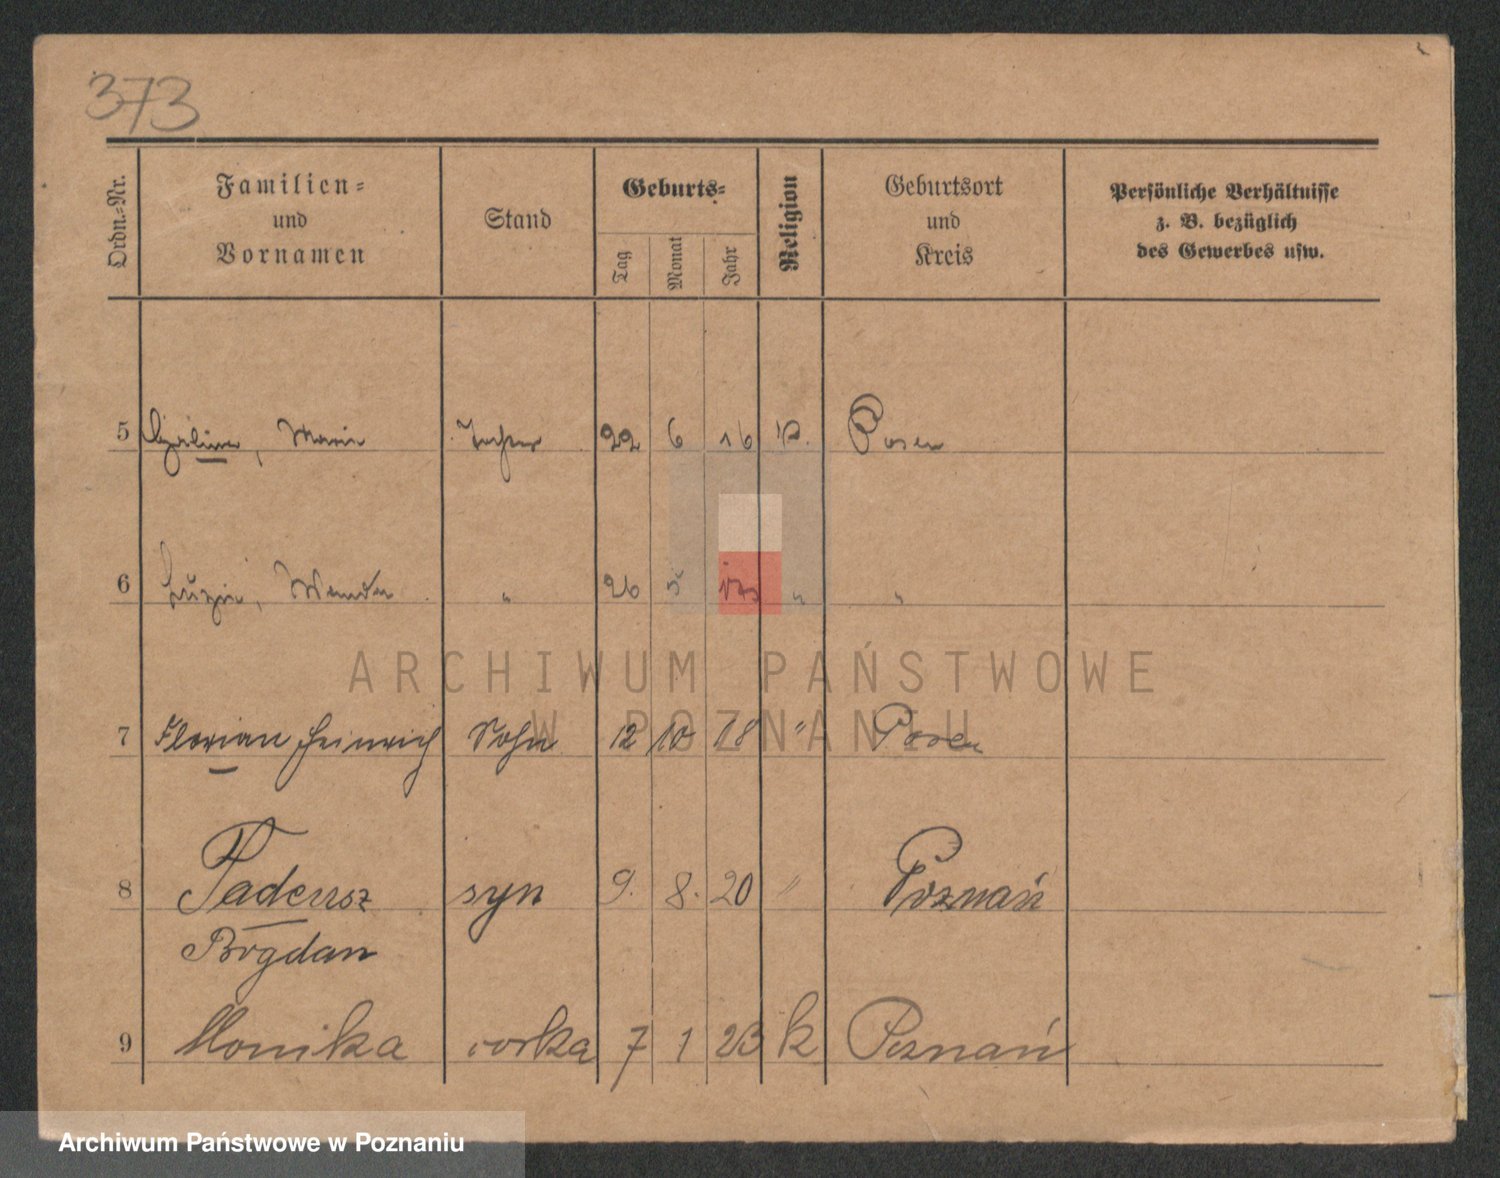 373
Ordn.-Nr.
Familien-
und
Vornamen
Stand
Geburts-
Tag
Monat
Jahr
Religion
Geburtsort
und
Kreis
Persönliche Verhältnisse
z. B. bezüglich
des Gewerbes usw.
5 Maria Tochter 22 6 16 Posen
6 Luzie, Wanda " 26 5 " "
7 Florian Heinrich Sohn 12 10 18 " Posen
8 Tadeusz syn 9. 8. 20 " Poznań
Bogdan
9 Monika corka 7 1 23 k Poznań
ARCHIWUM PAŃSTWOWE
W POZNANIU
Archiwum Państwowe w Poznaniu